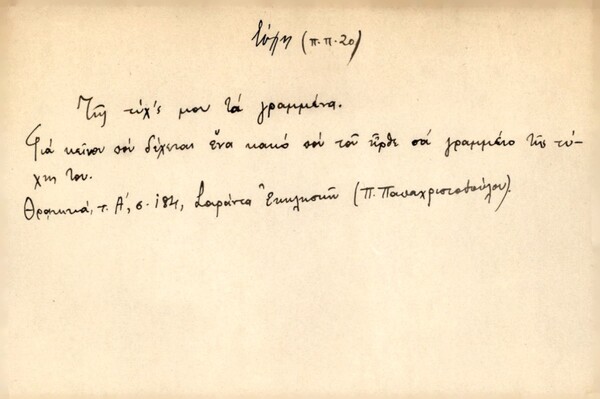 τύχη (π.π.20)
Τῆς τύχ'ς μου τά γραμμένα.
Γιά κεῖνον πού δέχεται ἕνα κακό πού τοῦ ἦρθε σά γραμμένο τῆς τύ-
χης του.
Θρακικά, τ. Α', σ. 184, Σαράντα Ἐκκλησιῶν (Π. Παπαχριστοδούλου).